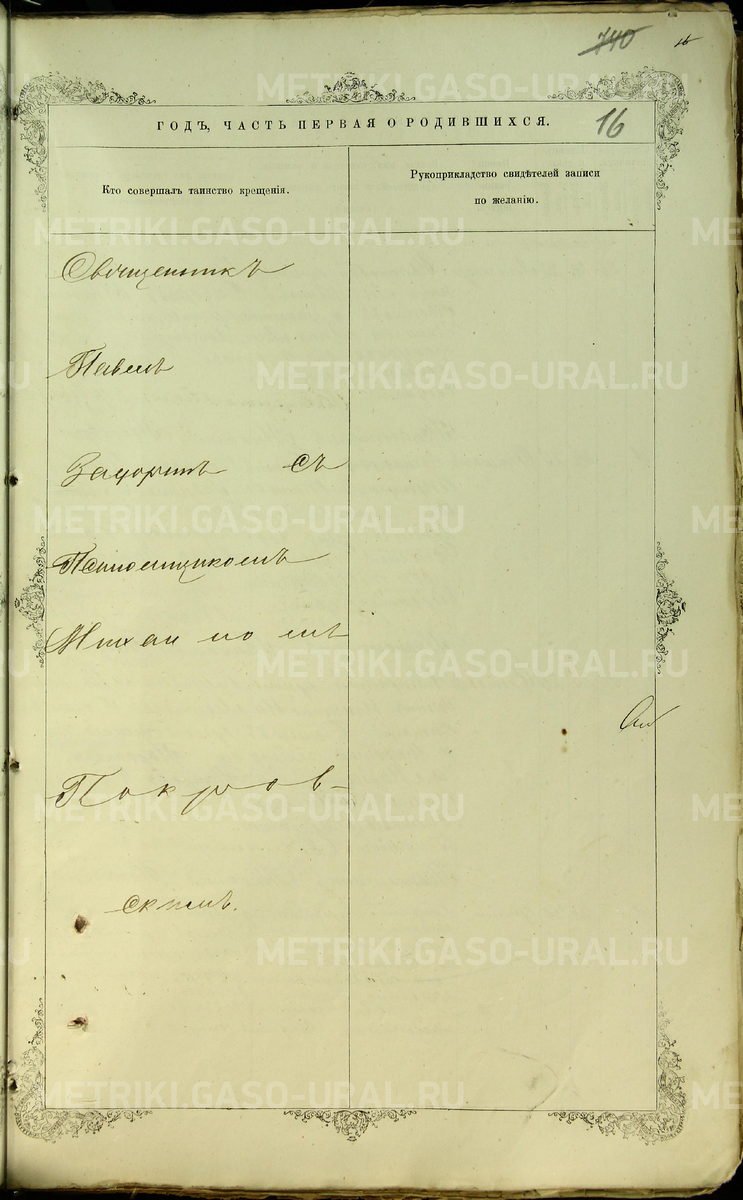 740
16
16
ГОДЪ, ЧАСТЬ ПЕРВАЯ О РОДИВШИХСЯ.
Кто совершалъ таинство крещенія.
Рукоприкладство свидѣтелей записи
по желанію.
Священникъ
Павелъ
съ
Псаломщикомъ
Михаиломъ
Покров-
скимъ.
METRIKI.GASO-URAL.RU